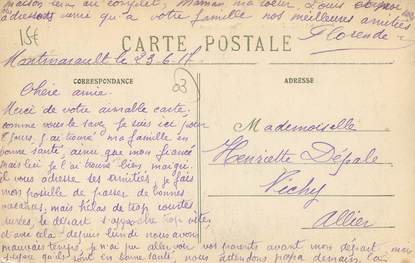 maison sera au complet, Maman, ma soeur, Louis
adressons ainsi qu'a votre famille nos meilleures amitiés
Florende
15€
CARTE POSTALE
le 23.6.
CORRESPONDANCE
ADRESSE
03
Chère amie.
Merci de votre aimable carte.
comme vous le savez je suis ici pour
jours, j'ai trouvé ma famille en
bonne santé, ainsi que mon fiancé
mais lui je l'ai trouvé bien maigri.
il vous adresse ses amitiés, je fais
mon possible de passer de bonnes
vacances, mais hélas de trop courtes
durées, le départ s'approche trop vite,
et avec cela depuis lundi nous avons
mauvais temps, je n'ai pu aller voir vos parents avant mon départ, mais
j'espère qu'ils sont en bonne santé, nous attendons papa demain la
Mademoiselle
Henriette Dépale
Vichy
Allier